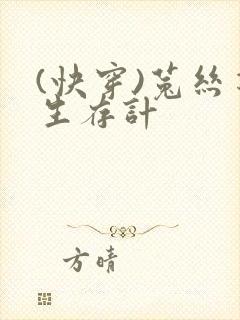 (快穿)菟絲
生存計
方晴